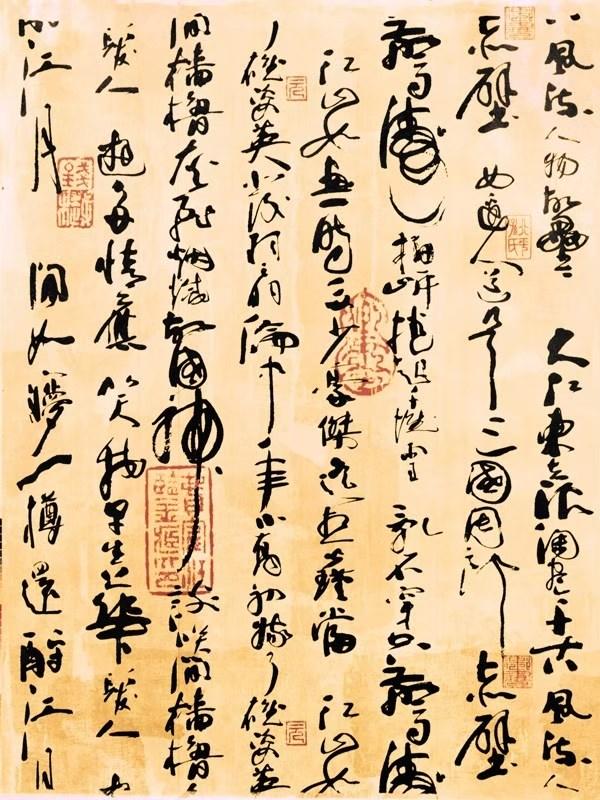 風流人物故壘 大江東去浪淘盡千古風流人
赤壁 西邊人道是三國周郎赤壁
驚濤拍岸捲起千堆雪 亂石穿空驚濤
江山如畫一時多少豪傑遙想公瑾當 江山如
了雄姿英發羽扇綸巾 年小喬初嫁了雄姿英
間檣櫓灰飛煙滅故國神 談笑間檣櫓
髮人 遊多情應笑我早生華髮人
江月 間如夢一樽還酹江月